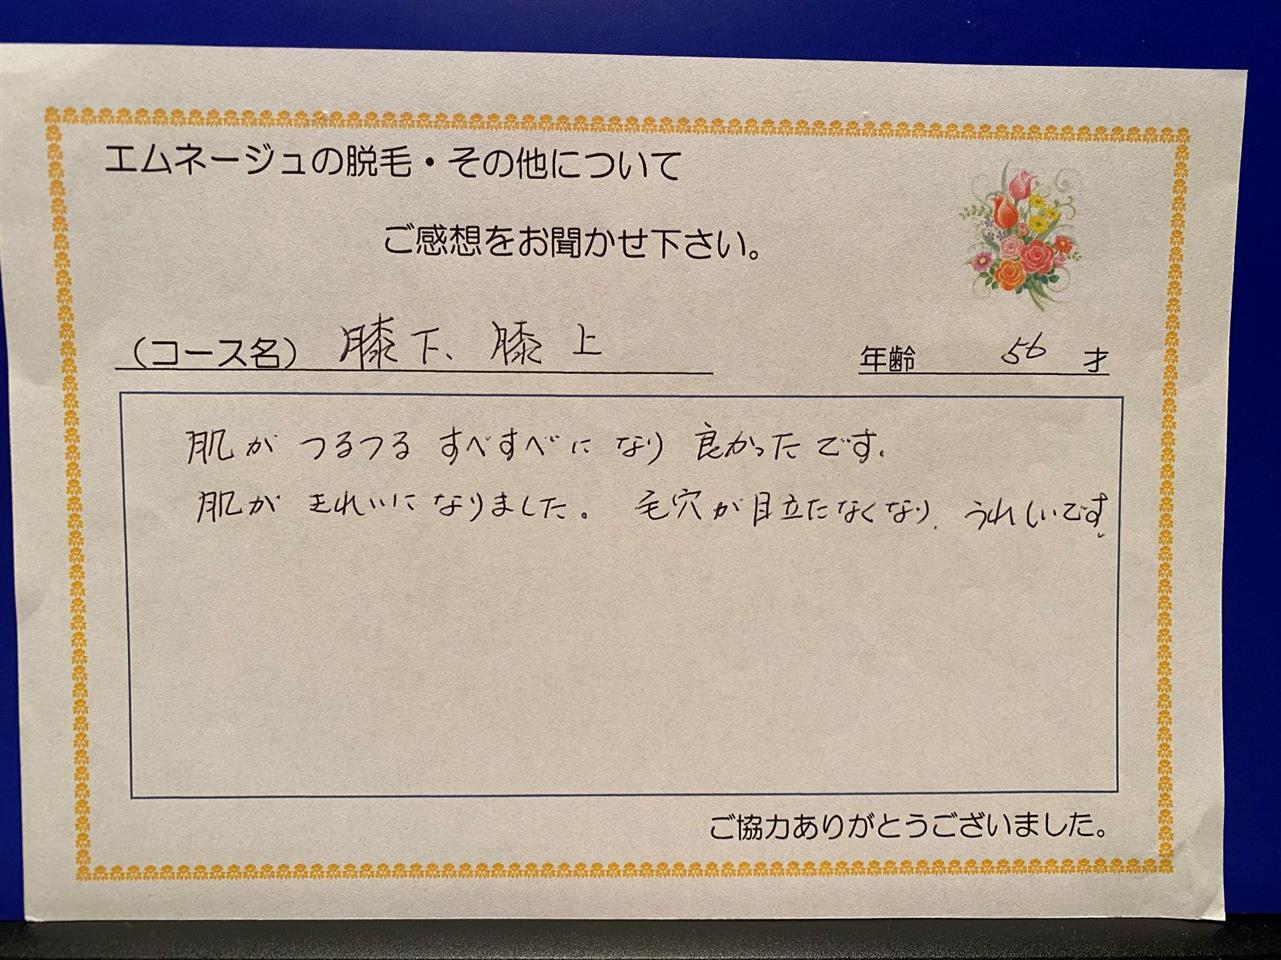 エムネージュの脱毛・その他について
ご感想をお聞かせ下さい。
（コース名） 膝下、膝上 年齢 56 才
肌が つるつる すべすべに なり 良かったです。
肌が きれいに なりました。 毛穴が目立たなくなり、うれしいです。
ご協力ありがとうございました。